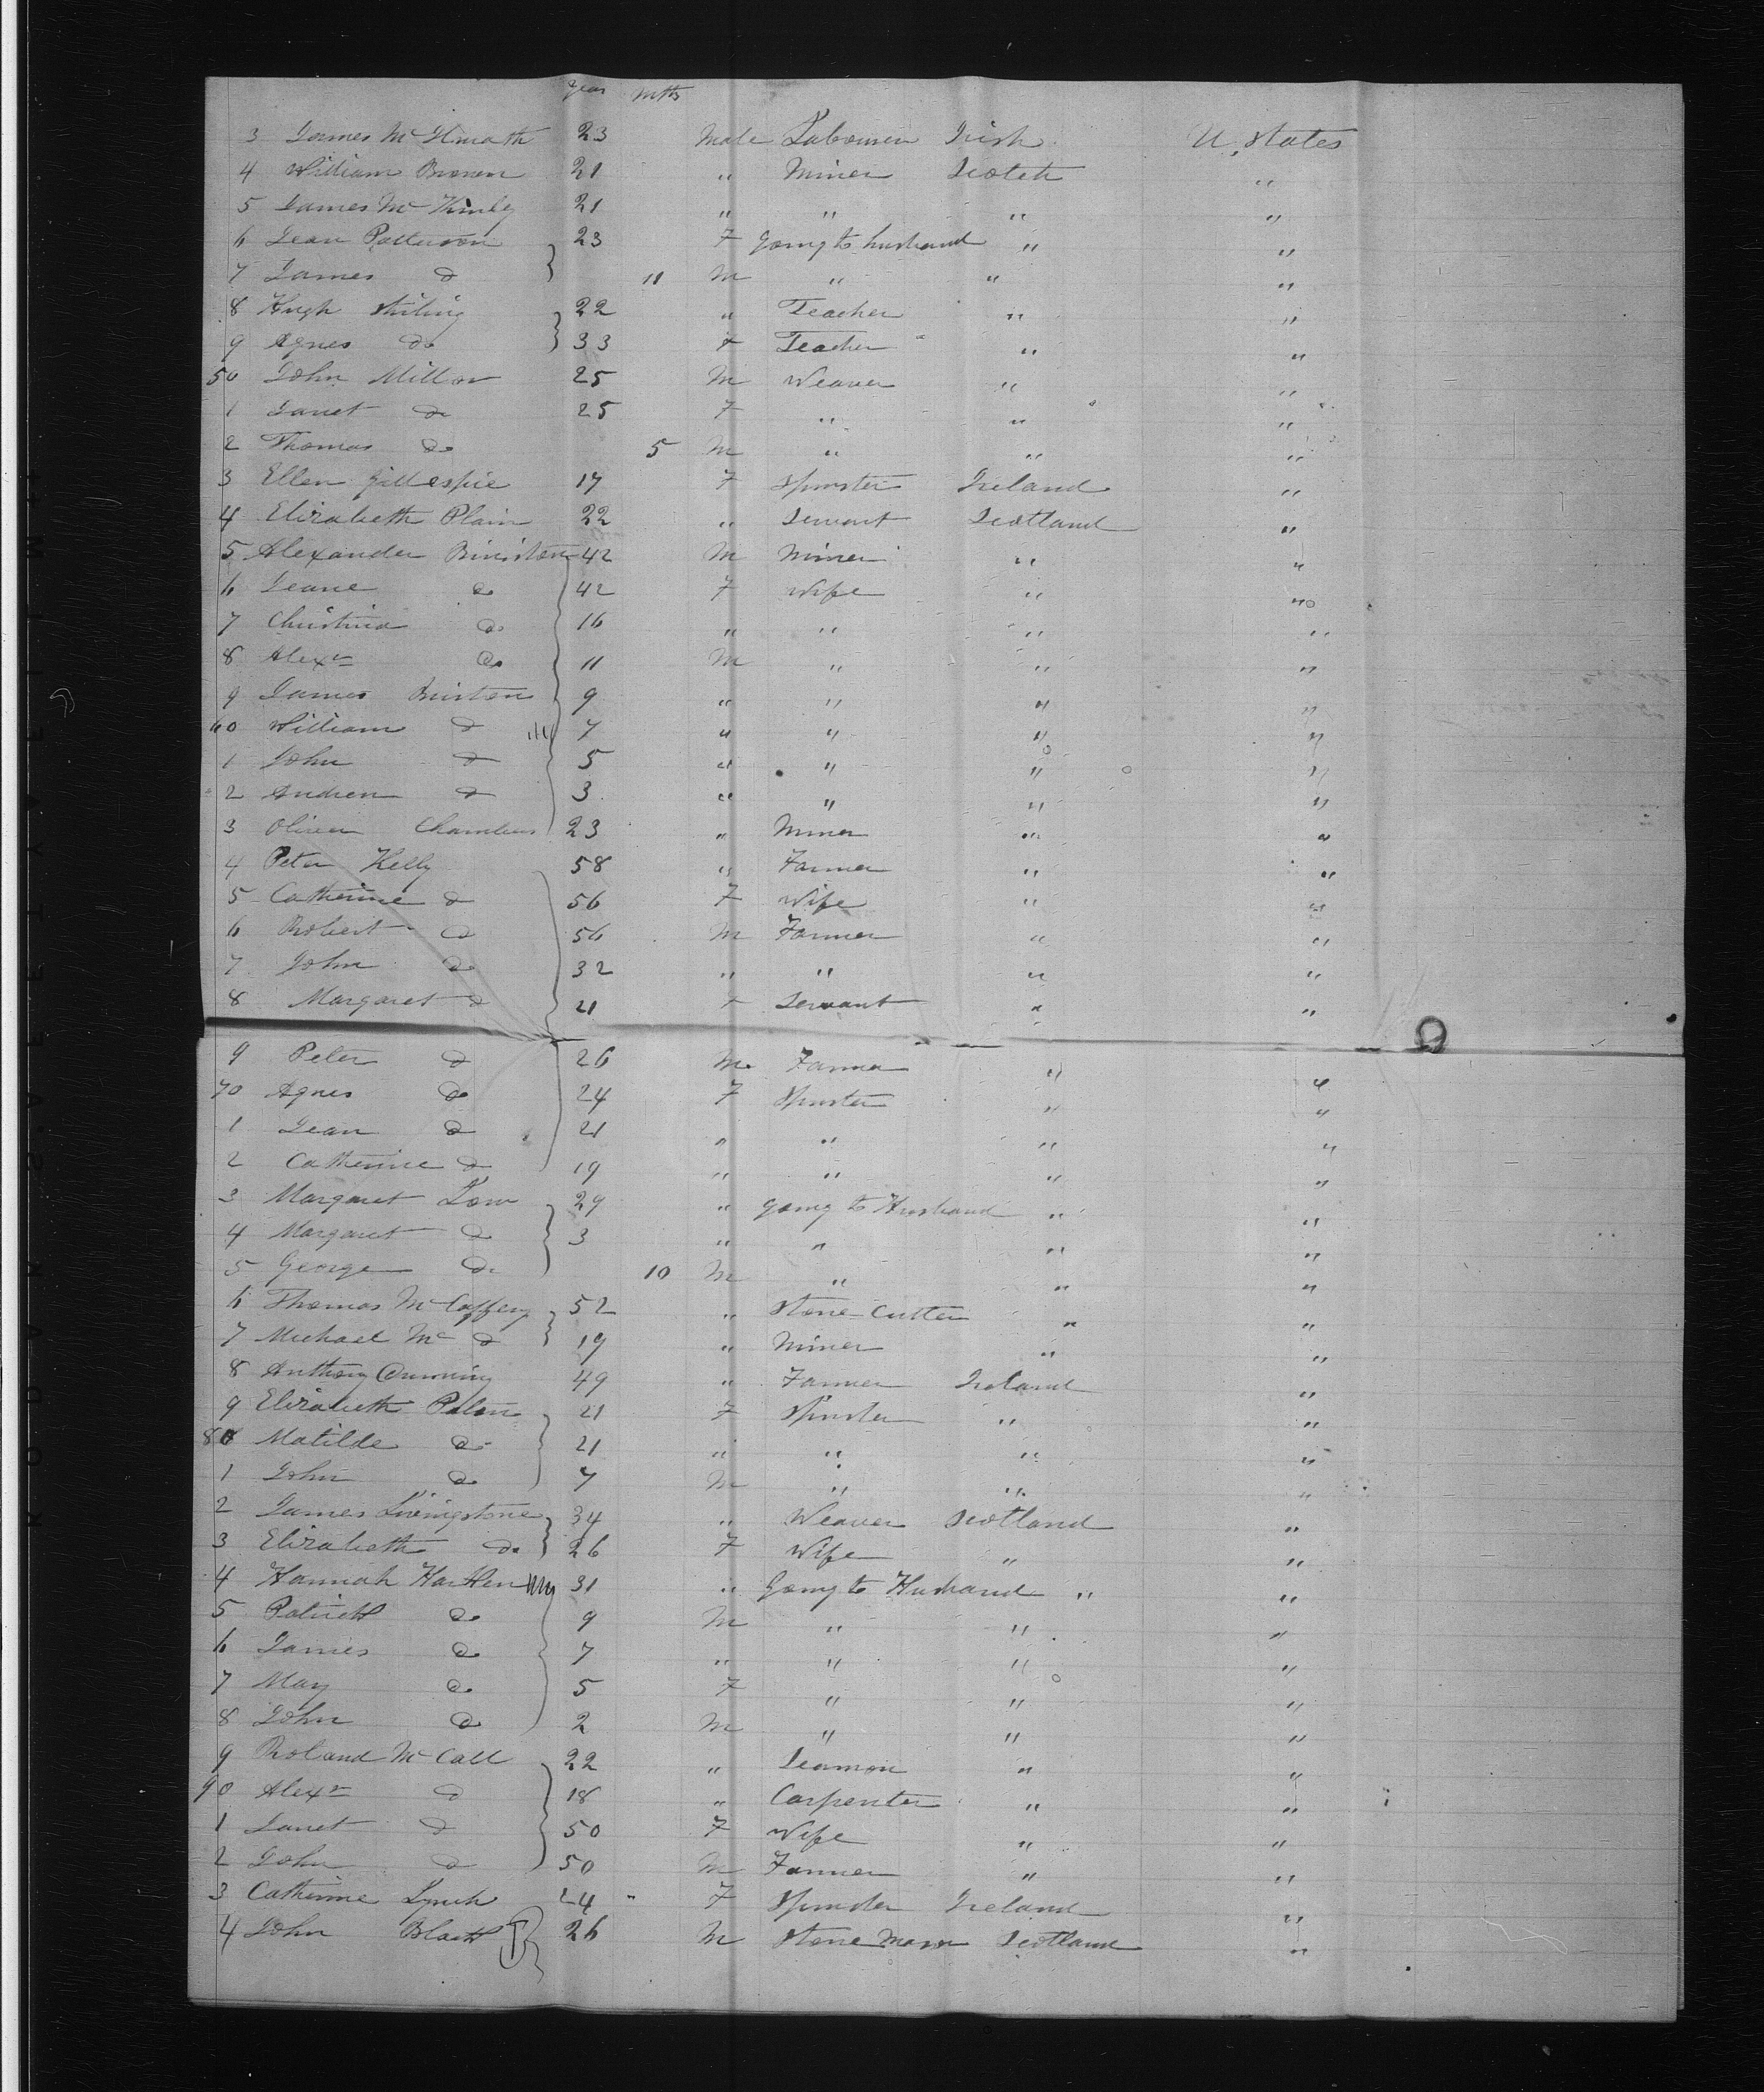 Year Mths
3 James McIlwrath 23 Male Labourer Irish U. States
4 William Brown 21 " Miner Scotch "
5 James McKinly 21 " " " "
6 Jean Patterson 23 F going to husband " "
7 James do 11 M " " "
8 Hugh Stirling 22 " Teacher " "
9 Agnes do 33 F Teacher " "
50 John Millar 25 M Weaver " "
1 Janet do 25 F " " "
2 Thomas do 5 M " " "
3 Ellen Gillespie 17 F Spinster Ireland "
4 Elizabeth Plain 22 " Servant Scotland "
5 Alexander 42 M Miner " "
6 Jeane do 42 F Wife " "
7 Christina do 16 " " " "
8 Alexr do 11 M " " "
9 James 9 " " " "
60 William do 7 " " " "
1 John do 5 " " " "
2 Andrew do 3 " " " "
3 Oliver Chambers 23 " Miner " "
4 Peter Kelly 58 " Farmer " "
5 Catherine do 56 F Wife " "
6 Robert do 56 M Farmer " "
7 John do 32 " " " "
8 Margaret do 21 F Servant " "
9 Peter do 26 M Farmer " "
70 Agnes do 24 F Spinster " "
1 Jean do 21 " " " "
2 Catherine do 19 " " " "
3 Margaret Low 29 " going to Husband " "
4 Margaret do 3 " " " "
5 George do 10 M " " "
6 Thomas McCaffery 52 " Stone Cutter " "
7 Michael Mc do 19 " Miner " "
8 Anthony 49 " Farmer Ireland "
9 Elizabeth 21 F Spinster " "
80 Matilde do 21 " " " "
1 John do 7 M " " "
2 James Livingstone 34 " Weaver Scotland "
3 Elizabeth do 26 F Wife " "
4 Hannah 31 " Going to Husband " "
5 Patrick do 9 M " " "
6 James do 7 " " " "
7 Mary do 5 F " " "
8 John do 2 M " " "
9 Roland McCall 22 " Seaman " "
90 Alexr do 18 " Carpenter " "
1 Janet do 50 F Wife " "
2 John do 50 M Farmer " "
3 Catherine Lynch 24 " F Spinster Ireland "
4 John Black 26 M Stone Mason Scotland "